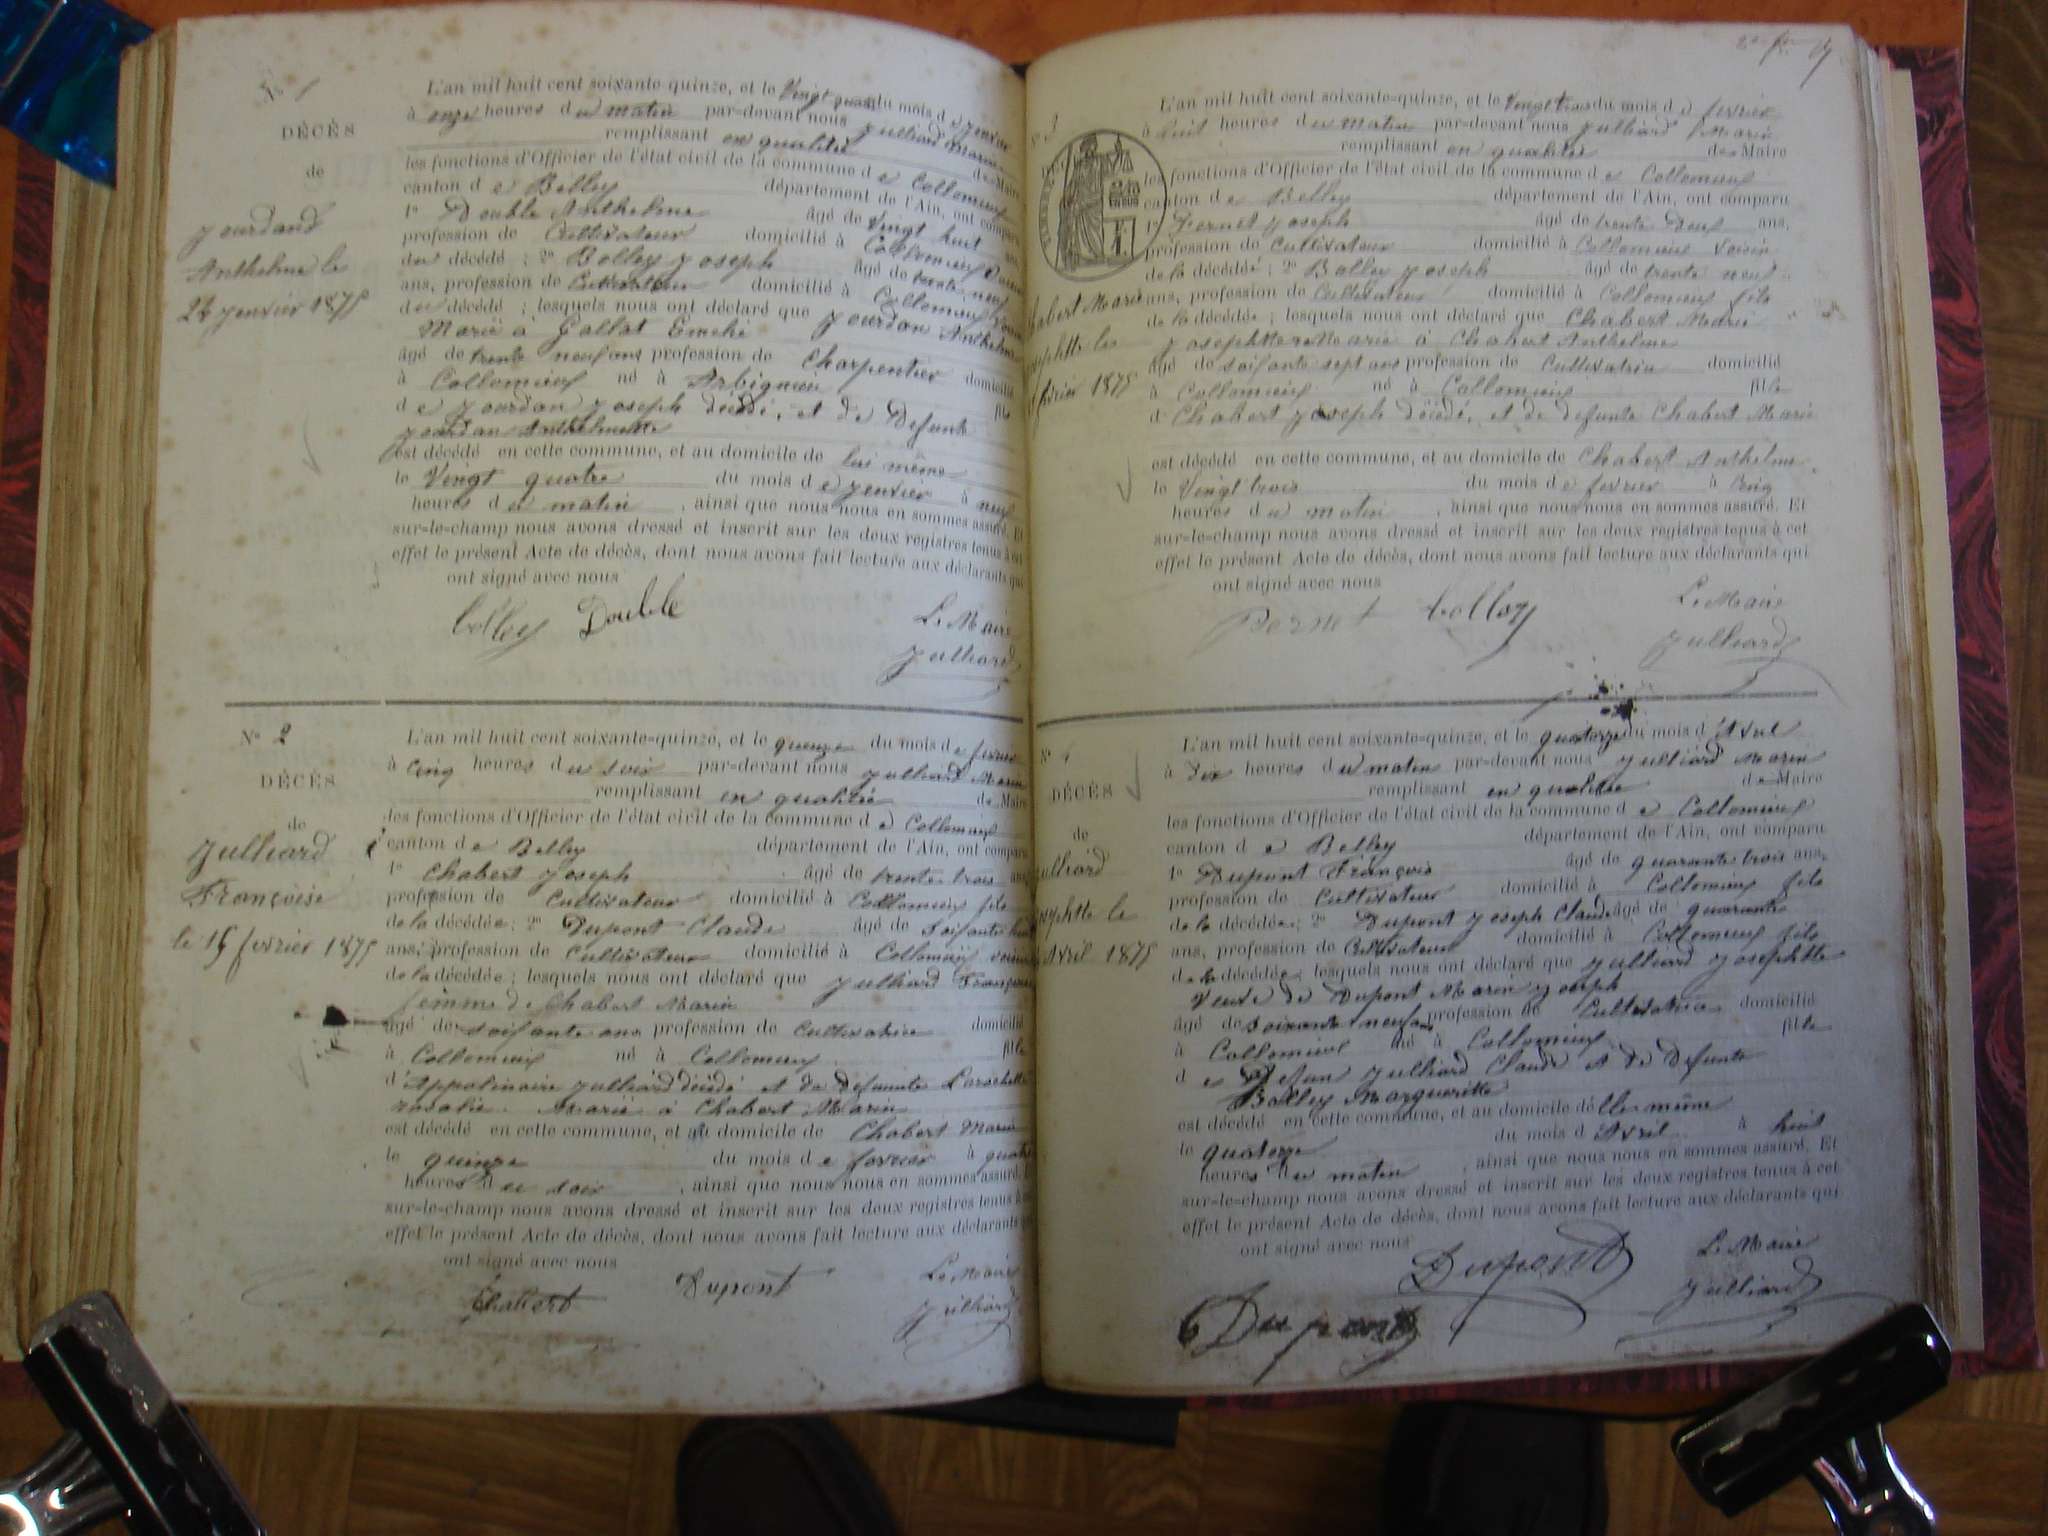 N° 1
DÉCÈS
de
Jourdand
Anthelme le
24 jenvier 1875
L'an mil huit cent soixante-quinze, et le Vingt quatre du mois de jenvier
à onze heures du matin par-devant nous Julliard Marin
remplissant en qualitée de Maire
les fonctions d'Officier de l'état civil de la commune de Collomieux
canton de Belley département de l'Ain, ont comparu
1° Double Anthelme âgé de Vingt huit ans,
profession de Cultivateur domicilié à Collomieux Voisin
du décédé ; 2° Bolley Joseph âgé de trente neuf
ans, profession de Cultivateur domicilié à Collomieux Voisin
du décédé ; lesquels nous ont déclaré que Jourdan Anthelme
Marié à Gallat Emelie
âgé de trente neuf ans profession de Charpentier domicilié
à Collomieux né à Arbignieu fils
de Jourdan Joseph décédé, et de Defunte
Jourdan Anthelmette
est décédé en cette commune, et au domicile de lui même
le Vingt quatre du mois de jenvier à neuf
heures du matin , ainsi que nous nous en sommes assuré. Et
sur-le-champ nous avons dressé et inscrit sur les deux registres tenus à cet
effet le présent Acte de décès, dont nous avons fait lecture aux déclarants qui
ont signé avec nous
bolley Double Le Maire
Julliard
N° 2
DÉCÈS
de
Julliard
Françoise
le 15 fevrier 1875
L'an mil huit cent soixante-quinze, et le quenze du mois de fevrier
à Cinq heures du soir par-devant nous Julliard Marin
remplissant en qualitée de Maire
les fonctions d'Officier de l'état civil de la commune de Collomieux
canton de Belley département de l'Ain, ont comparu
1° Chabert Joseph âgé de trente trois ans,
profession de Cultivateur domicilié à Collomieux fils
de la décédée ; 2° Dupont Claude âgé de soifante huit
ans, profession de Cultivateur domicilié à Collomieux voisin
de la décédée ; lesquels nous ont déclaré que Julliard Françoise
femme de Chabert Marin
âgé de soifante ans profession de Cultivatrice domicilié
à Collomieux né à Collomieux fille
d'Appolinaire Julliard décédé et de defunte
rosalie. Marié à Chabert Marin
est décédé en cette commune, et au domicile de Chabert Marin
le quinze du mois de fevrier à quatre
heures du soir , ainsi que nous nous en sommes assuré. Et
sur-le-champ nous avons dressé et inscrit sur les deux registres tenus à cet
effet le présent Acte de décès, dont nous avons fait lecture aux déclarants qui
ont signé avec nous
Chabert Dupont Le Maire
Julliard
Chabert Marie
Josephtte le
fevrier 1875
L'an mil huit cent soixante-quinze, et le Vingt trois du mois de fevrier
à huit heures du matin par-devant nous Julliard Marin
remplissant en qualitée de Maire
les fonctions d'Officier de l'état civil de la commune de Collomieux
canton de Belley département de l'Ain, ont comparu
1° Pernet Joseph âgé de trente Deux ans,
profession de Cultivateur domicilié à Collomieux Voisin
de la décédée ; 2° Bolley Joseph âgé de trente neuf
ans, profession de Cultivateur domicilié à Collomieux fils
de la décédée ; lesquels nous ont déclaré que Chabert Marie
Josephtte Marié à Chabert Anthelme
âgé de soifante sept ans profession de Cultivatrice domicilié
à Collomieux né à Collomieux fille
d' Chabert Joseph décédé, et de defunte Chabert Marie
est décédé en cette commune, et au domicile de Chabert Anthelme
le Vingt trois du mois de fevrier à Cinq
heures du matin , ainsi que nous nous en sommes assuré. Et
sur-le-champ nous avons dressé et inscrit sur les deux registres tenus à cet
effet le présent Acte de décès, dont nous avons fait lecture aux déclarants qui
ont signé avec nous
Pernet bolley Le Maire
Julliard
N° 4
DÉCÈS
de
Julliard
Josephtte le
Avril 1875
L'an mil huit cent soixante-quinze, et le quatorze du mois d'Avril
à dix heures du matin par-devant nous Julliard Marin
remplissant en qualitée de Maire
les fonctions d'Officier de l'état civil de la commune de Collomieux
canton de Belley département de l'Ain, ont comparu
1° Dupont François âgé de quarante trois ans,
profession de Cultivateur domicilié à Collomieux fils
de la décédée ; 2° Dupont Joseph Claude âgé de quarante
ans, profession de Cultivateur domicilié à Collomieux fils
de la décédée ; lesquels nous ont déclaré que Julliard Josephtte
Veuve de Dupont Marin Joseph
âgé de soixante neuf ans profession de Cultivatrice domicilié
à Collomieux né à Collomieux fille
de Defun Julliard Claude et de defunte
Bolley Margueritte
est décédé en cette commune, et au domicile d'elle même
le quatorze du mois d'Avril à huit
heures du matin , ainsi que nous nous en sommes assuré. Et
sur-le-champ nous avons dressé et inscrit sur les deux registres tenus à cet
effet le présent Acte de décès, dont nous avons fait lecture aux déclarants qui
ont signé avec nous
Dupont Le Maire
Dupont Julliard